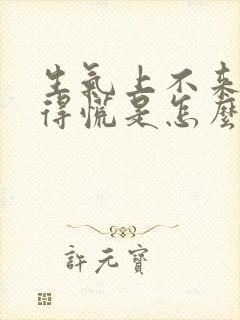 生氣上不來
得慌是怎麼
許元寶